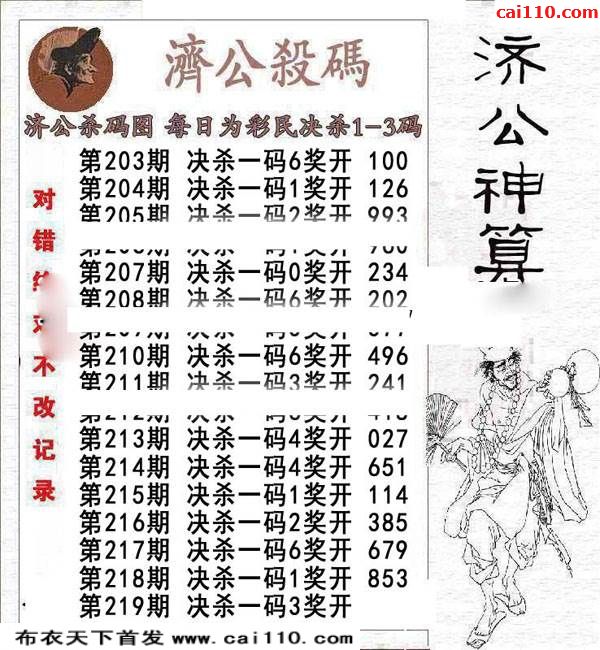 cai110.com
濟公殺碼
济公神算
济公杀码图 每日为彩民决杀1-3码
对错
不改记录
第203期 决杀一码6奖开 100
第204期 决杀一码1奖开 126
第205期 决杀一码2奖开 993
第207期 决杀一码0奖开 234
第208期 决杀一码6奖开 202
第210期 决杀一码6奖开 496
第211期 决杀一码3奖开 241
第213期 决杀一码4奖开 027
第214期 决杀一码4奖开 651
第215期 决杀一码1奖开 114
第216期 决杀一码2奖开 385
第217期 决杀一码6奖开 679
第218期 决杀一码1奖开 853
第219期 决杀一码3奖开
布衣天下首发 www.cai110.com